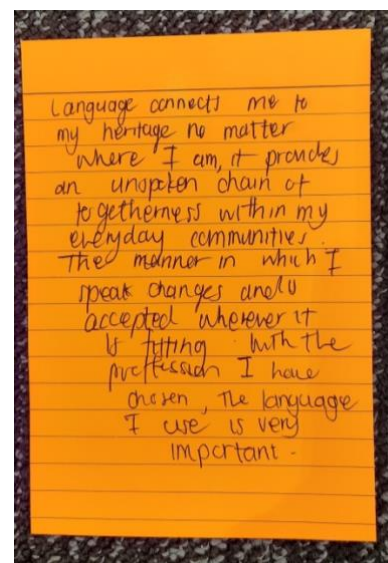 Language connects me to
my heritage no matter
where I am, it provides
an unspoken chain of
togetherness within my
everyday communities.
The manner in which I
speak changes and
accepted wherever it
is fitting. With the
proffession I have
chosen, The language
I use is very
important.